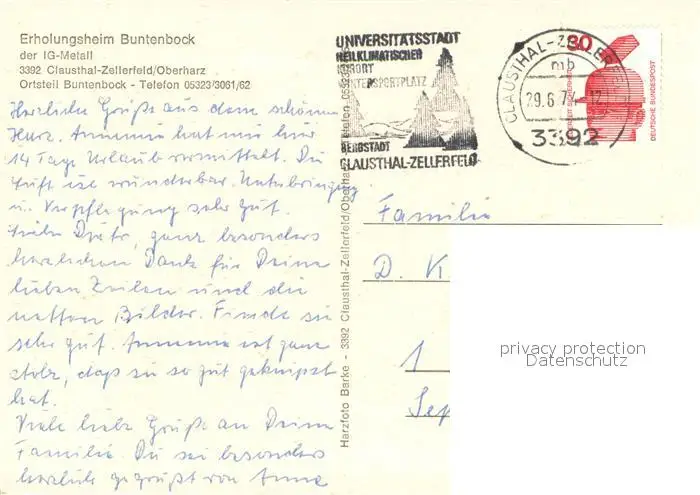 Erholungsheim Buntenbock
der IG-Metall
3392 Clausthal-Zellerfeld/Oberharz
Ortsteil Buntenbock - Telefon 05323/3061/62
Herzliche Grüße aus dem schönen
Harz. Annemie hat uns hier
14 Tage Urlaub vermittelt. Die
Luft ist wunderbar. Unterbringung
u. Verpflegung sehr gut.
Liebe ganz besonders
herzlichen Dank für Deine
lieben Zeilen und die
netten Bilder. Finde sie
sehr gut. Annemie ist ganz
stolz, daß sie so gut geknipst
hat.
Viele liebe Grüße an Deine
Familie. Du sei besonders
herzlich gegrüßt von Anne
Harzfoto Barke - 3392 Clausthal-Zellerfeld/Oberharz Telefon 05323
UNIVERSITÄTSSTADT
HEILKLIMATISCHER
KURORT
WINTERSPORTPLATZ
BERGSTADT
CLAUSTHAL-ZELLERFELD
CLAUSTHAL-ZELLERFELD
mb
29.6.74
3392
30
DEUTSCHE BUNDESPOST
Familie
D. K
1
Sep
privacy protection
Datenschutz